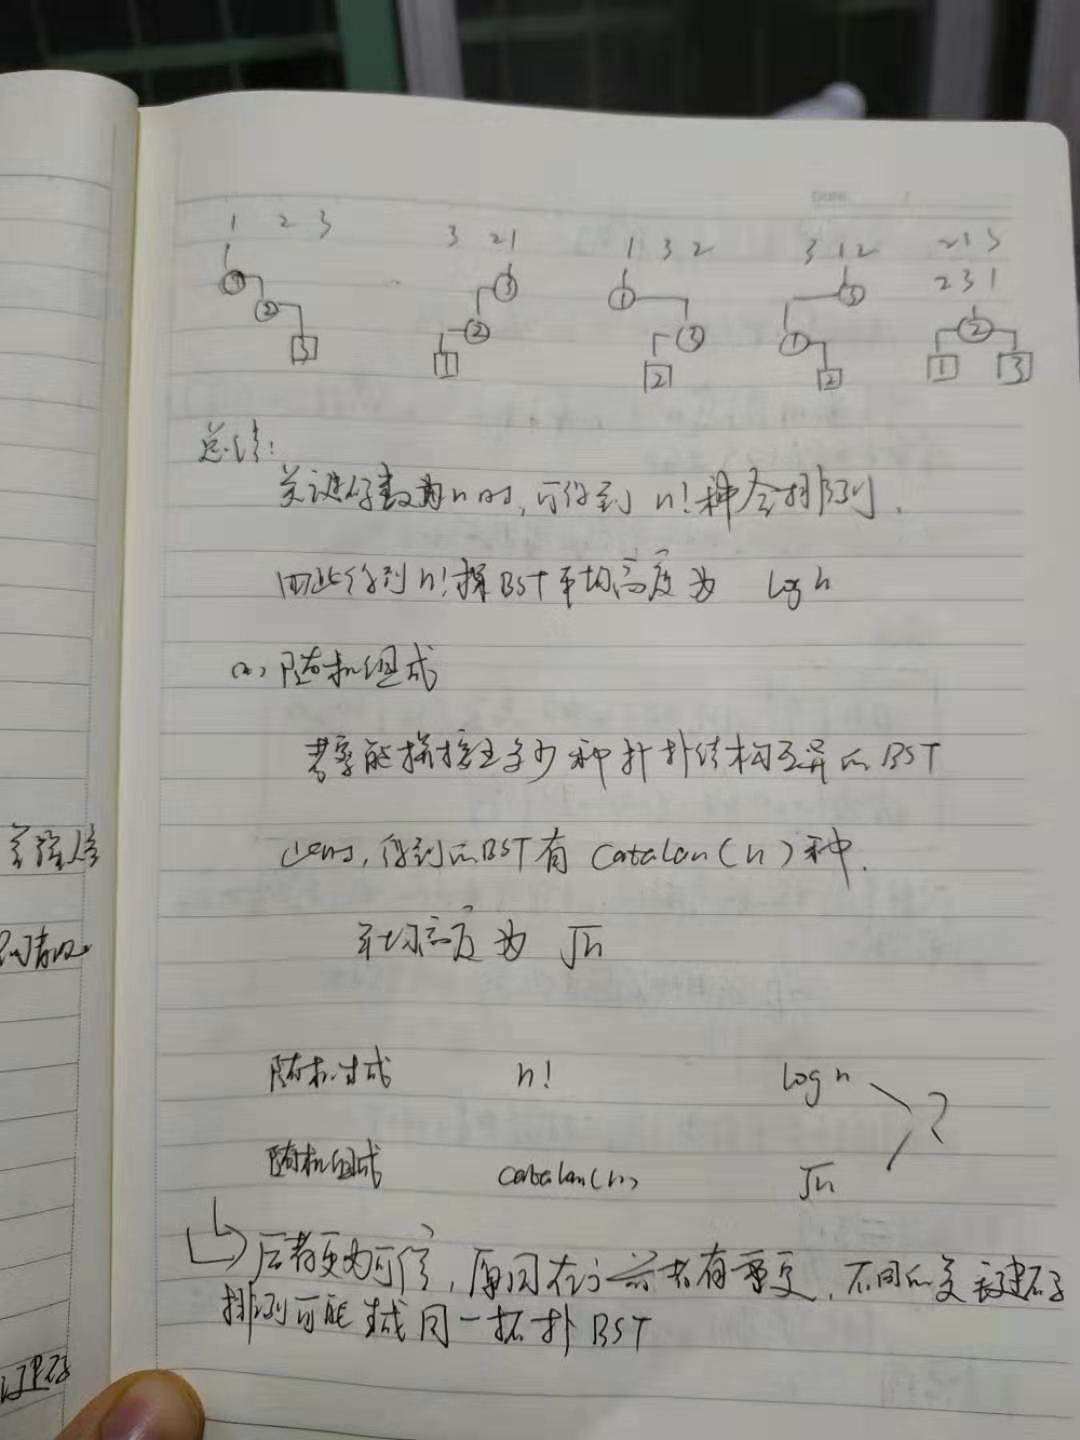 Date /
1 2 3 3 2 1 1 3 2 3 1 2 2 1 3
2 3 1
1 3 1 3 2
2 2 3 1
3 1 2 2 1 3
总结:
关键码数为n时,可得到 n!种全排列.
因此得到n!棵BST平均高度为 logn
(2) 随机组成
考察能拼接出多少种拓扑结构互异的BST
此时,得到的BST有 Catalan(n)种.
平均高度为 √n
随机生成 n! logn
?
随机组成 catalan(n) √n
后者更为可信,原因在于前者有重复,不同的关键码
排列可能生成同一拓扑BST